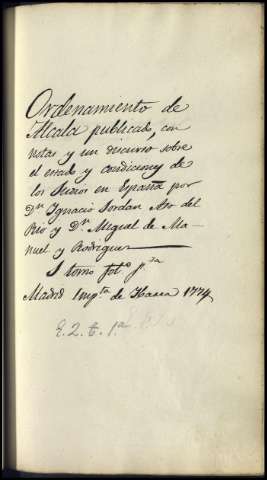 Ordenamiento de
Alcala publicado, con
notas y un discurso sobre
el estado y condicion de
los Judios en España por
Dn Ignacio Jordan Aso del
Rio y Dn Miguel de Ma-
nuel y Rodriguez
1 tomo fol° pta
Madrid Impta de Ibarra 1774
E. 2. t. 1.a